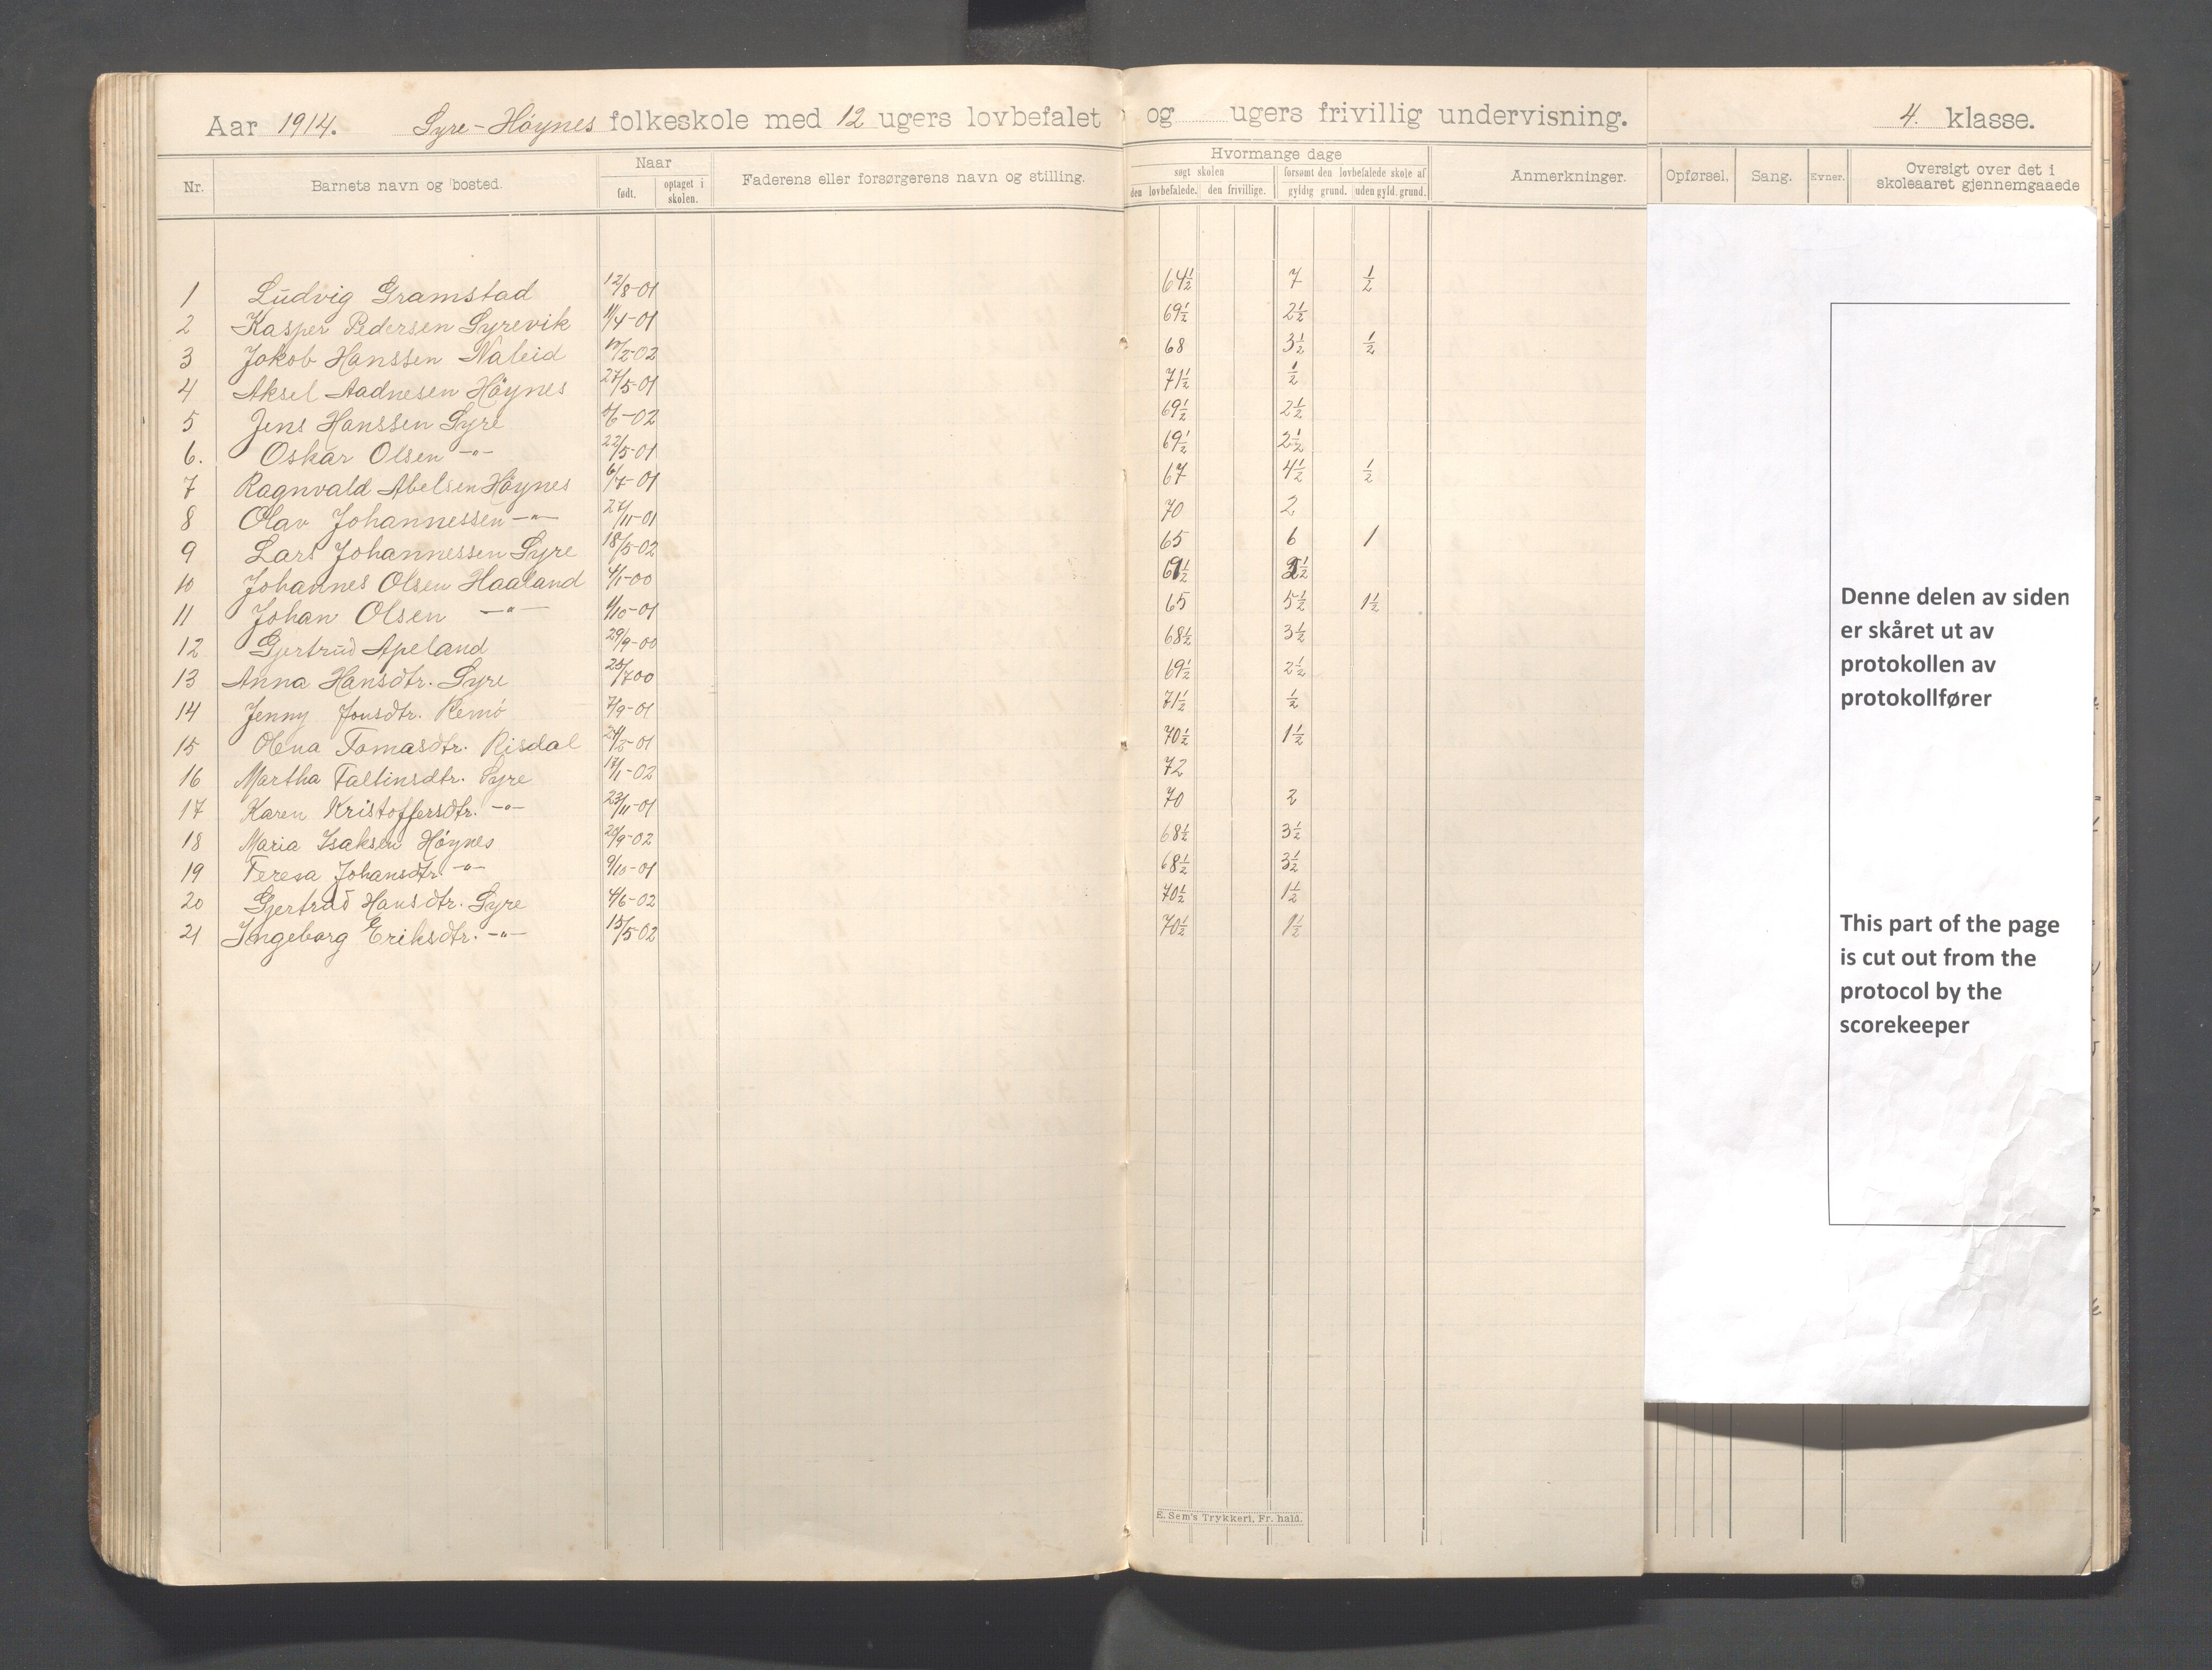 Aar 1914. Syre-Höynes folkeskole med 12 ugers lovbefalet og ugers frivillig undervisning. 4. klasse.
Nr. Barnets navn og bosted. Naar født. optaget i skolen. Faderens eller forsørgerens navn og stilling. Hvormange dage søgt skolen den lovbefalede. den frivillige. forsømt den lovbefalede skole af gyldig grund. uden gyld. grund. Anmerkninger. Opførsel. Sang. Evner. Oversigt over det i skoleaaret gjennemgaaede
1 Ludvig Gramstad 12/8-01 64½ 7 ½
2 Kasper Pedersen Syrevik 11/4-01 69½ 2½
3 Jokob Hanssen Naleid /2-02 68 3½ ½
4 Aksel Aadnesen Höynes 27/5-01 71½ ½
5 Jens Hanssen Syre /6-02 69½ 2½
6. Oskar Olsen -"- 22/5-01 69½ 2½
7 Ragnvald Abelsen Höynes 6/7-01 67 4½ ½
8 Olav Johannessen -"- 27/11-01 70 2
9 Lars Johannessen Syre 18/5-02 65 6 1
10 Johannes Olsen Haaland 4/1-00
11 Johan Olsen -"- /10-01 65 5½ 1½
12 Gjertrud Apeland 29/9-00 68½ 3½
13 Anna Hansdtr. Syre 25/7 00 69½ 2½
14 Jenny Jonsdtr. Remö 7/9-01 71½ ½
15 Olena Tomasdtr. Risdal 70½ 1½
16 Martha Faltinsdtr. Syre 17/1-02 72
17 Karen Kristoffersdtr. -"- 23/11-01 70 2
18 Maria Isaksen Höynes /9-02 68½ 3½
19 Teresa Johansdtr. -"- 9/10-01 68½ 3½
20 Gjertrud Hansdtr. Syre 4/6-02 70½ 1½
21 Ingeborg Eriksdtr. -"- 15/5-02 70½ 1½
E. Sem's Trykkeri, Fr. hald.
Denne delen av siden
er skåret ut av
protokollen av
protokollfører
This part of the page
is cut out from the
protocol by the
scorekeeper